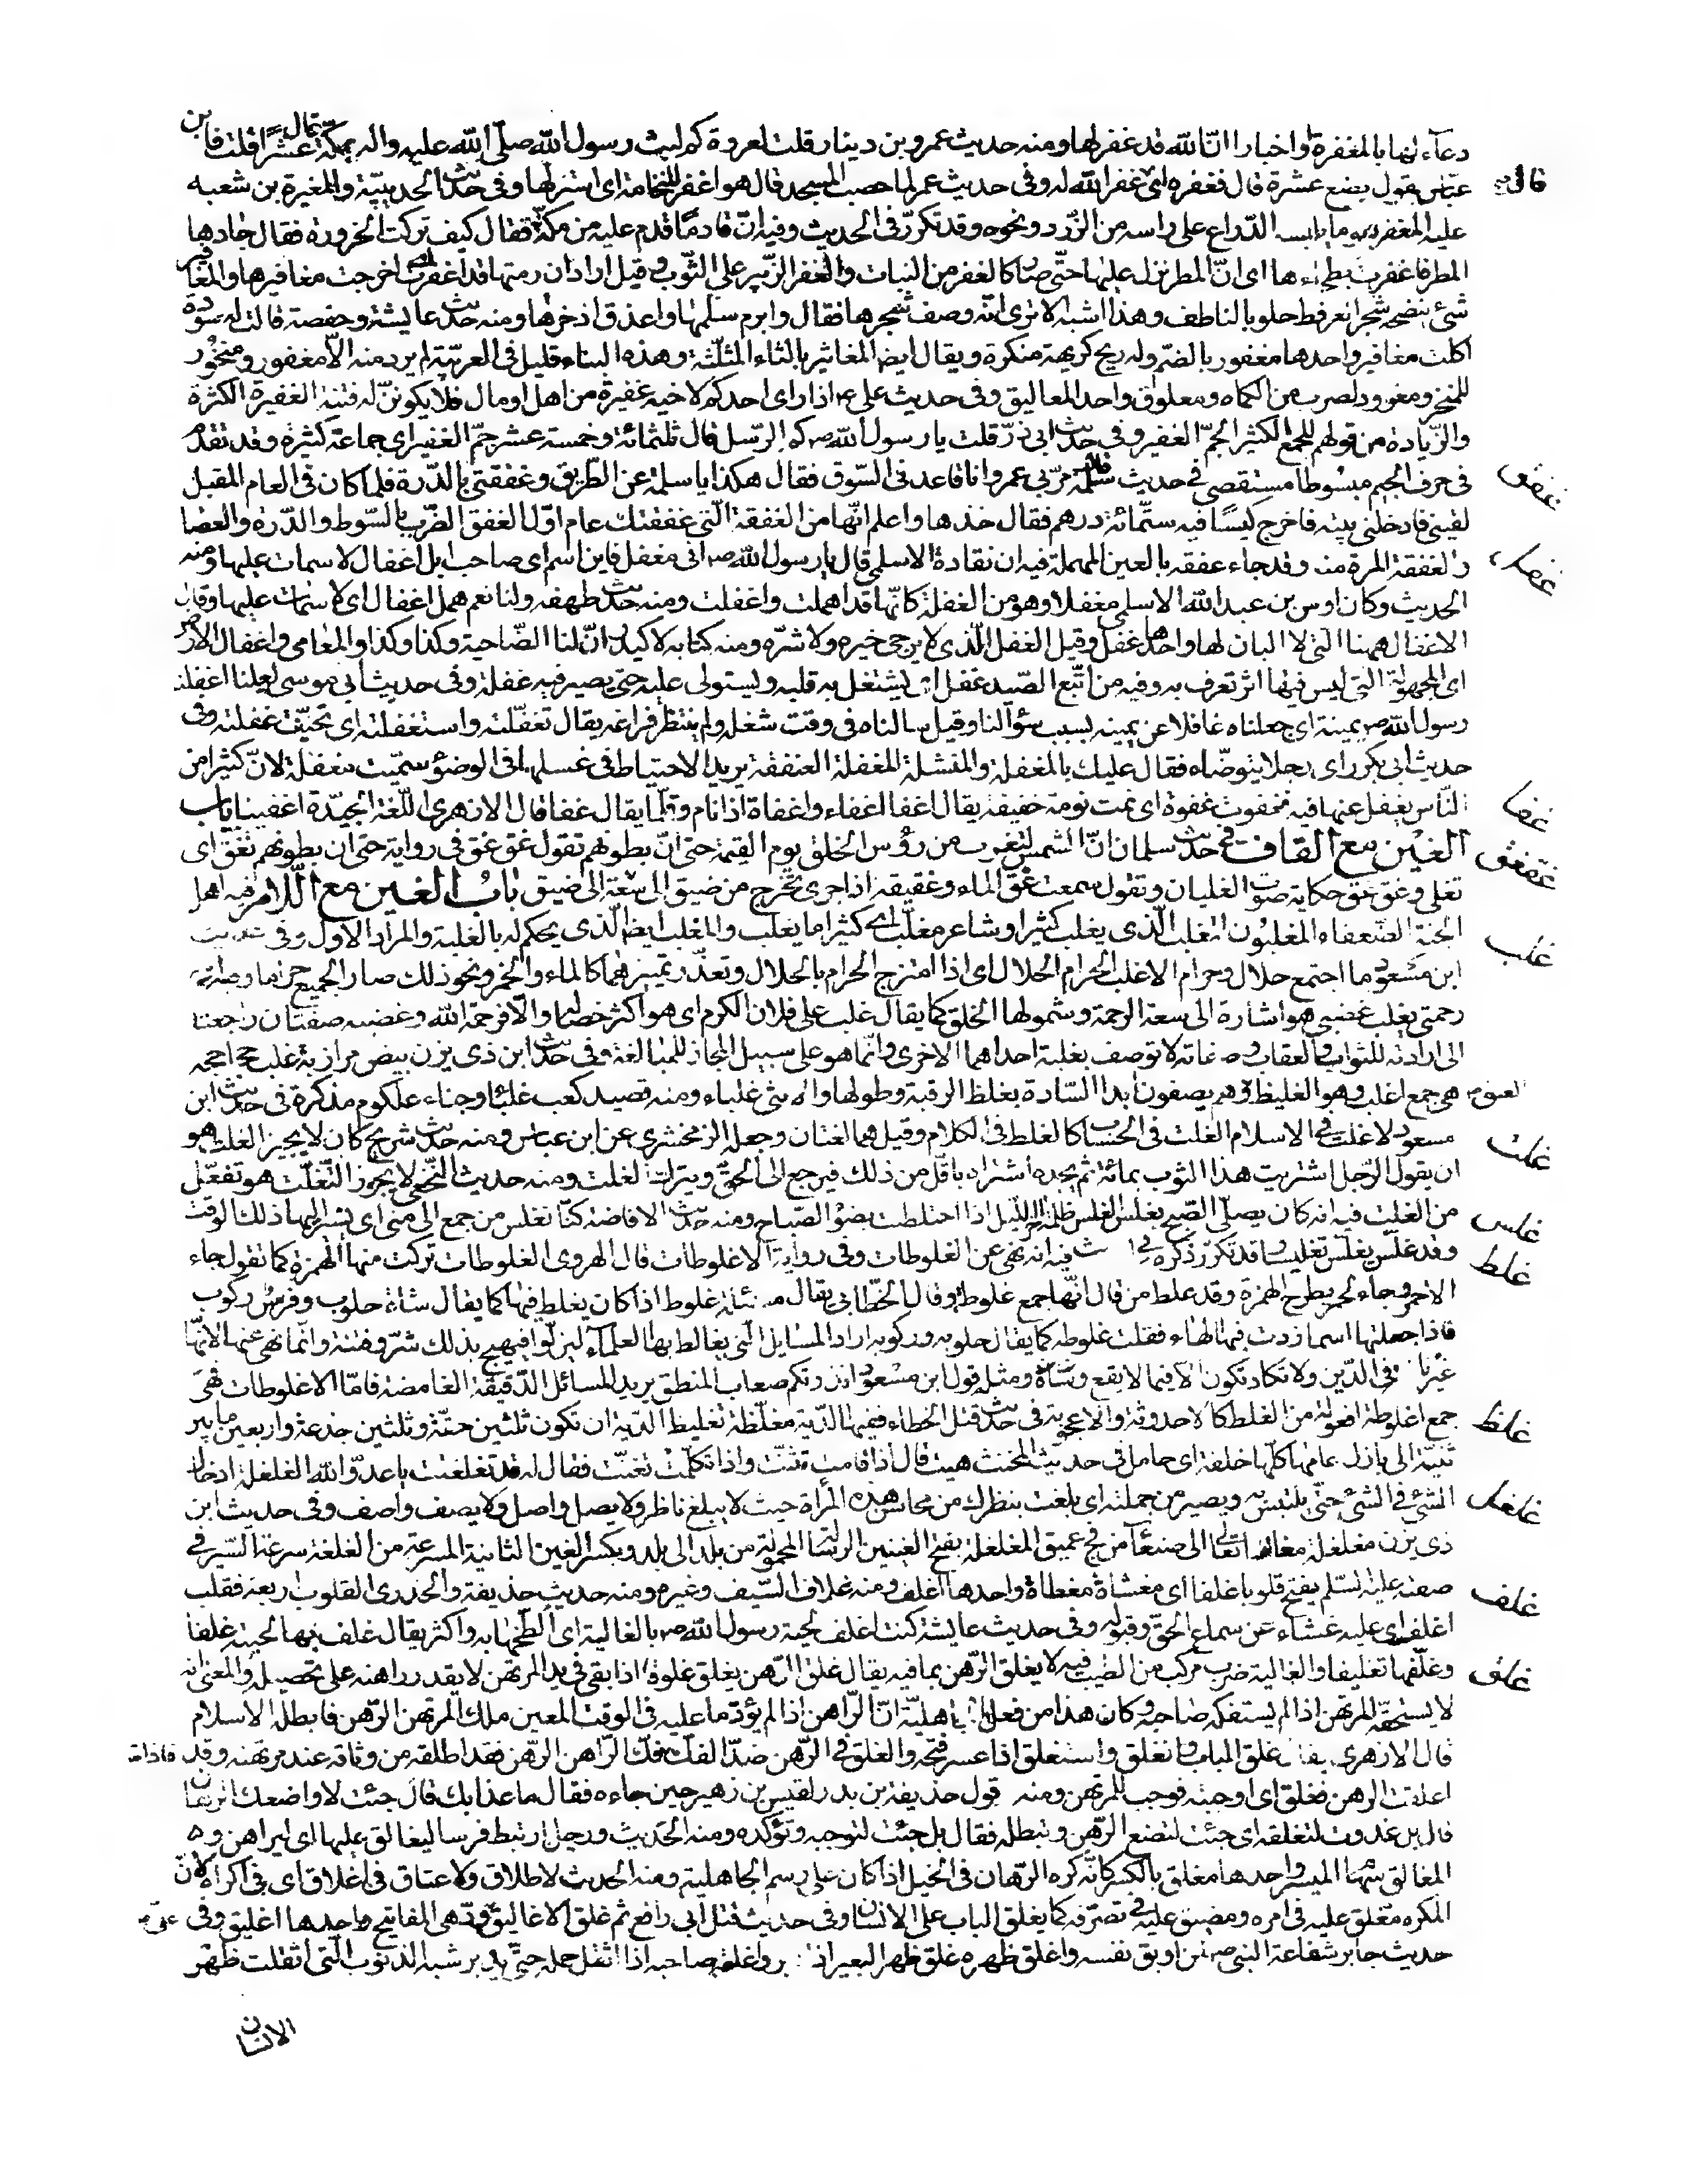 دعآء لها بالمغفرة واخبارا انّ الله قد غفر لها ومنه حديث عمرو بن دينار قلت لعروة كم لبث رسول الله صلّى الله عليه واله بمكّة قال عشرًا قلت فابن
عبّاس يقول بضع عشرة قال فغفره اى غفر الله له وفى حديث عمر لما حصب المسجد قال هو اغفر للنخامة اى استر لها وفى حدّيث الحديبيّة والمغيرة بن شعبه
عليه المغفر هو ما يلبسه الدّراع على راسه من الزّرد ونحوه وقد تكرّر فى الحديث وفيه انّ قادمًا قدم عليه من مكّة فقال كيف تركت الحزورة فقال جادها
المطر فاغفرت بطحاءها اى انّ المطر نزل عليها حتّى صار كالغفر من النبات والغفر الزّئبر على الثّوب وقيل اراد ان رمثها قد اغفرت اى اخرجت مغافيرها والمغافير
شئ ينضحه شجر العرفط حلو بالناطف وهذا اشبه الا ترى انّه وصف شجرها فقال وابرم سلمها واعذق اذخرها ومنه حدّيث عايشة وحفصة قالت له سودة
اكلت مغافير واحدها مغفور بالضم وله ريح كريهة منكرة ويقال ايضا المغاثير بالثاء المثلّثة وهذه البناء قليل فى العربيّة لم يرد منه الاّ مغفور ومنخور
للمنخر ومغرود لضرب من الكماه ومعلوق واحد المعاليق وفى حديث على ع اذا راى احدكم لاخيه غفيرة من اهل او مال فلا يكوننّ له فتنة الغفيرة الكثرة
والزّيادة من قولهم للجمع الكثير الجمّ الغفير وفى حدّيث ابى ذرّ قلت يا رسول الله ص كم الرّسل قال ثلثمائة وخمسة عشر جمّ الغفير اى جماعة كثيرة وقد تقدّم
فى حرف الجيم مبسوطا مستقصى فى حديث سلمة قال مرّ بى عمر وانا قاعد فى السّوق فقال هكذا يا سلمة عن الطّريق وغفقنى بالدّرة فلما كان فى العام المقبل
لقينى فادخلنى بيته فاخرج كيسًا فيه ستّمائة درهم فقال خذها واعلم انّها من الغفقة الّتى غفقتك عام اوّل الغفق الضّرب بالسّوط والدّرة والعصا
والغفقة المرة منه وقد جاء عفقه بالعين المهملة فيه ان نقادة الاسلمى قال يا رسول الله ص انى مغفل فاين اسم اى صاحب ابل اغفال لا سمات عليها ومنه
الحديث وكان اوس بن عبد الله الاسلمى مغفلا وهو من الغفلة كانّها قد اهملت واغفلت ومنه حدّيث طهفه ولنا نعم همل اغفال اى لا سمات عليها وقيل
الاغفال ههنا التى لا البان لها واحدها غفل وقيل الغفل الّذى لا يرجى خيره ولا شرّه ومنه كتابه لاكيدر انّ لنا الضّاحية وكذا وكذا والمعامى واغفال الارض
اى المجهولة التى ليس فيها اثر تعرف به وفيه من اتّبع الصّيد غفل اى يشتغل به قلبه ويستولى عليه حتى يصير فيه غفلة وفى حديث ابى موسى لعلنا اغفلنا
رسول الله ص يمينه اى جعلناه غافلا عن يمينه بسبب سؤالنا وقيل سالناه فى وقت شغله ولم ينتظر فراغه يقال تغفّلته واستغفلته اى تحيّنت غفلته وفى
حديث ابى بكر راى رجلا يتوضّاء فقال عليك بالمغفلة والمنشلة المغفلة العنفقة يريد الاحتياط فى غسلها فى الوضوء سمّيت مغفلة لانّ كثيرا من
النّاس يغفل عنها فيه فغفوت غفوة اى نمت نومة خفيفة يقال اغفا اغفاء واغفاة اذا نام وقلّما يقال غفا قال الازهرى اللّغة الجيّدة اغفينا باب
الغين مع القاف فى حدّيث سلمان انّ الشمس لتقرب من رؤس الخلق يوم القيمة حتى انّ بطونهم تقول غق غق فى رواية حتى ان بطونهم تغق اى
تغلى وغق غق حكاية صوت الغليان وتقول سمعت غق الماء وغقيقه اذا جرى يخرج من ضيق الى سعة الى ضيق باب الغين مع اللام فيه اهل
الجنة الضعفاء المغلبون المغلب الّذى يغلب كثيرا وشاعر مغلّب اى كثيرا ما يغلب والمغلب ايضا الّذى يحكم له بالغلبة والمراد الاول وفى حديث
ابن مسعود ما اجتمع حلال وحرام الا غلب الحرام الحلال اى اذا امتزج الحرام بالحلال وتعذّر تميزهما كالماء والخمر ونحو ذلك صار الجميع حراما وفيه
رحمتى تغلب غضبى هو اشارة الى سعة الرحمة وشمولها الخلق كما يقال غلب على فلان الكرم اى هو اكثر خصاله والاّ فرحمة الله وغضبه صفتان راجعتا
الى ارادته للثواب والعقاب وصفاته لا توصف بغلبة احداهما الاخرى وانّما هو على سبيل المجاز للمبالغة وفى حدّيث ابن ذى يزن بيض مرازبة غلب جحاجحه
هى جمع اغلب وهو الغليظ العنق وهم يصفون ابدا السّادة بغلظ الرقبة وطولها والانثى غلباء ومنه قصيد كعب غلباء وجناء علكوم مذكرة فى حدّيث ابن
مسعود لا غلت فى الاسلام الغلت فى الحساب كالغلط فى الكلام وقيل هما لغتان وجعله الزمخشرى عن ابن عباس ومنه حدّيث شريح كان لا يجيز الغلت هو
ان يقول الرّجل اشتريت هذا الثوب بمائة ثم يجده اشتراه باقلّ من ذلك فيرجع الى الحق ويترك الغلت ومنه حديث النّخعى لا يجوز التّغلّت هو تفعّل
من الغلت فيه انه كان يصلّى الصّبح بغلس الغلس ظلمة اخر اللّيل اذا اختلطت بضوء الصّباح ومنه حدّيث الافاضة كنّا نغلس من جمع الى منى اى نسير اليها ذلك الوقت
وقد غلّس يغلّس تغليسا وقد تكرّر ذكره فى الحديث فيه انه نهى عن الغلوطات وفى رواية الاغلوطات قال الهروى الغلوطات تركت منها الهمزة كما تقول جاء
الاحمر وجاء لحمر بطرح الهمزة وقد غلط من قال انّها جمع غلوطة وقال الخطّابى يقال مسئلة غلوط اذا كان يغلط فيها كما يقال شاة حلوب وفرس ركوب
فاذا جعلتها اسما زدت فيها الهاء فقلت غلوطه كما يقال حلوبه وركوبه اراد المسايل التى يغالط بها العلماء ليزلّوا فيهيج بذلك شرّ وفتنة وانّما نهى عنها لانّها
غير نافعة فى الدّين ولا تكاد تكون الا فيما لا يقع ومثله قول ابن مسعود انذرتكم صعاب المنطق يريد المسائل الدّقيقة الغامضة فامّا الاغلوطات فهى
جمع اغلوطة افعولة من الغلط كالاحدوثة والاعجوبة فى حدّيث قتل الخطاء ففيها الدّية مغلّظة تغليظ الدّية ان تكون ثلثين حقّة وثلثين جذعة واربعين ما بين
ثنيّة الى بازل عامها كلّها خلفة اى حامل فى حديث المخنث هيت قال اذا قامت تثنّت واذا تكلّمت تغنّت فقال له قد تغلغلت يا عدوّ الله الغلغلة ادخال
الشّئ فى الشّئ حتى يلتبس به ويصير من جملته اى بلغت بنظرك من محاسن هذه المرأة حيث لا يبلغ ناظر ولا يصل واصل ولا يصف واصف وفى حديث ابن
ذى يزن مغلغلة مغالقها تعالى الى صنعاء من فج عميق المغلغلة بفتح الغينين الرسالة المحمولة من بلد الى بلد وبكسر الغين الثانية المسرعة من الغلغلة سرعة السّير فى
صفته عليه السّلم يفتح قلوبا غلفا اى مغشاة مغطاة واحدها اغلف ومنه غلاف السّيف وغيره ومنه حديث حذيفة والخدرى القلوب اربعة فقلب
اغلف اى عليه غشاء عن سماع الحقّ وقبوله وفى حديث عايشة كنت اغلف لحية رسول الله ص بالغالية اى الطّخها به واكثر يقال غلف بها لحيته غلفا
وغلّفها تغليفا والغالية ضرب مركب من الطيب فيه لا يغلق الرّهن بما فيه يقال غلق الرّهن يغلق غلوقا اذا بقى فى يد المرتهن لا يقدر راهنه على تخصيله والمعنى انه
لا يستحقّه المرتهن اذا لم يستفكه صاحبه وكان هذا من فعل الجاهليّة انّ الرّاهن اذا لم يؤدّ ما عليه فى الوقت المعين ملك المرتهن الرّهن فابطله الاسلام
قال الازهرى يقال غلق الباب وانغلق واستغلق اذا عسر فتحه والغلق فى الرّهن ضدّ الفك فاذا فكّ الرّاهن الرّهن فقد اطلقه من وثاقه عند مرتهنه وقد
اغلقت الرهن فغلق اى اوجبته فوجب للمرتهن ومنه قول حذيفة بن بدر لقيس بن زهير حين جاءه فقال ما غدا بك قال جئت لاواضعك الرهان
قال بل غدوت لتغلقه اى جئت لتضع الرّهن وتبطله فقال بل جئت لتوجبه وتؤكده ومنه الحديث ورجل ارتبط فرسا ليغالق عليها اى ليراهن
المغالق سهام الميسر واحدها مغلق بالكسر كانّه كره الرّهان فى الخيل اذا كان على رسم الجاهلية ومنه الحديث لا طلاق ولا عتاق فى اغلاق اى فى اكراه لانّ
المكره مغلق عليه فى امره ومضيق عليه فى تصرّفه كما يغلق الباب على الانسان وفى حديث قتل ابى رافع ثم غلق الاغاليق على ودّ هى المفاتيح واحدها اغليق وفى
حديث جابر شفاعة النبى ص لمن اوبق نفسه واغلق ظهره غلق ظهر البعير اذا دبر واغلقه صاحبه اذا اثقل حمله حتى يدبر شبه الذنوب الّتى اثقلت ظهر
الانسان
قال
غفق
غفل
غفا
غقغق
غلب
غلت
غلس
غلط
غلظ
غلغل
غلف
غلق